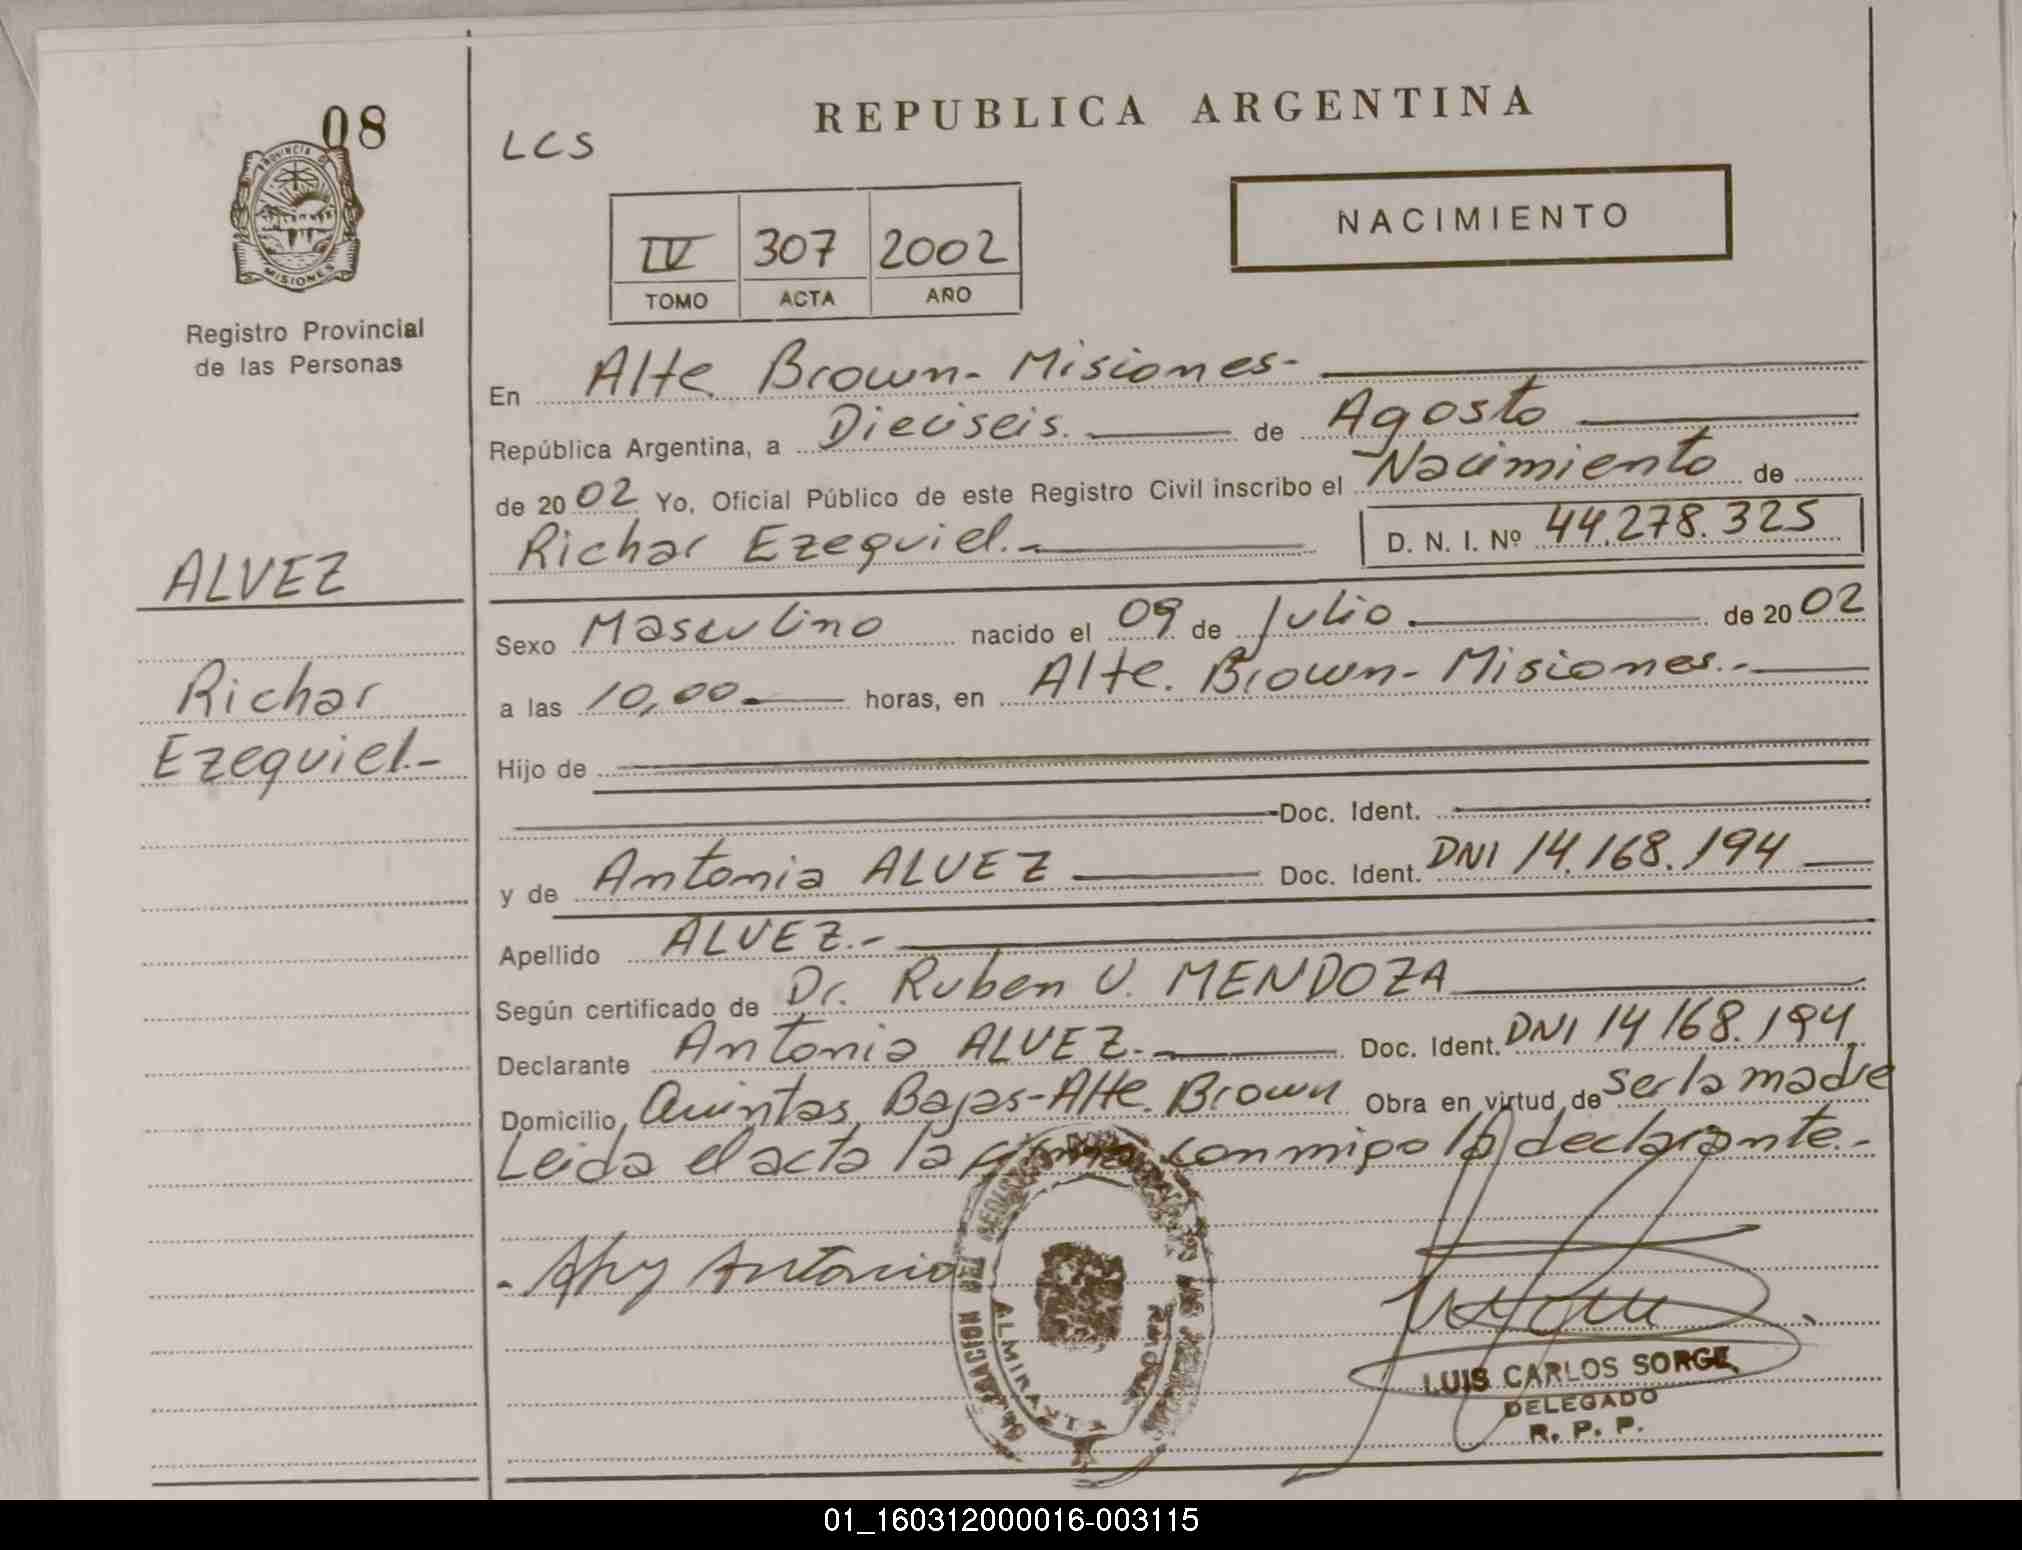 08
PROVINCIA DE
MISIONES
Registro Provincial
de las Personas
ALVEZ
Richar
Ezequiel.-
LCS
REPUBLICA ARGENTINA
NACIMIENTO
IV 307 2002
TOMO ACTA AÑO
En Alte Brown-Misiones-
República Argentina, a Dieciseis. de Agosto
de 20 02 Yo, Oficial Público de este Registro Civil inscribo el Nacimiento de
Richar Ezequiel.- D. N. I. Nº 44.278.325
Sexo Masculino nacido el 09 de Julio de 20 02
a las 10,00 horas, en Alte. Brown-Misiones.-
Hijo de
Doc. Ident.
y de Antonia ALVEZ Doc. Ident. DNI 14.168.194
Apellido ALVEZ.-
Según certificado de Dr. Ruben V. MENDOZA
Declarante Antonia ALVEZ.- Doc. Ident. DNI 14 168.194
Domicilio Quintas Bajas-Alte. Brown Obra en virtud de ser la madre
Leida el acta la firma conmigo la declarante.-
Antonia
DELEGACION
ALMIRANTE
LUIS CARLOS SORGE
DELEGADO
R. P. P.
01_160312000016-003115